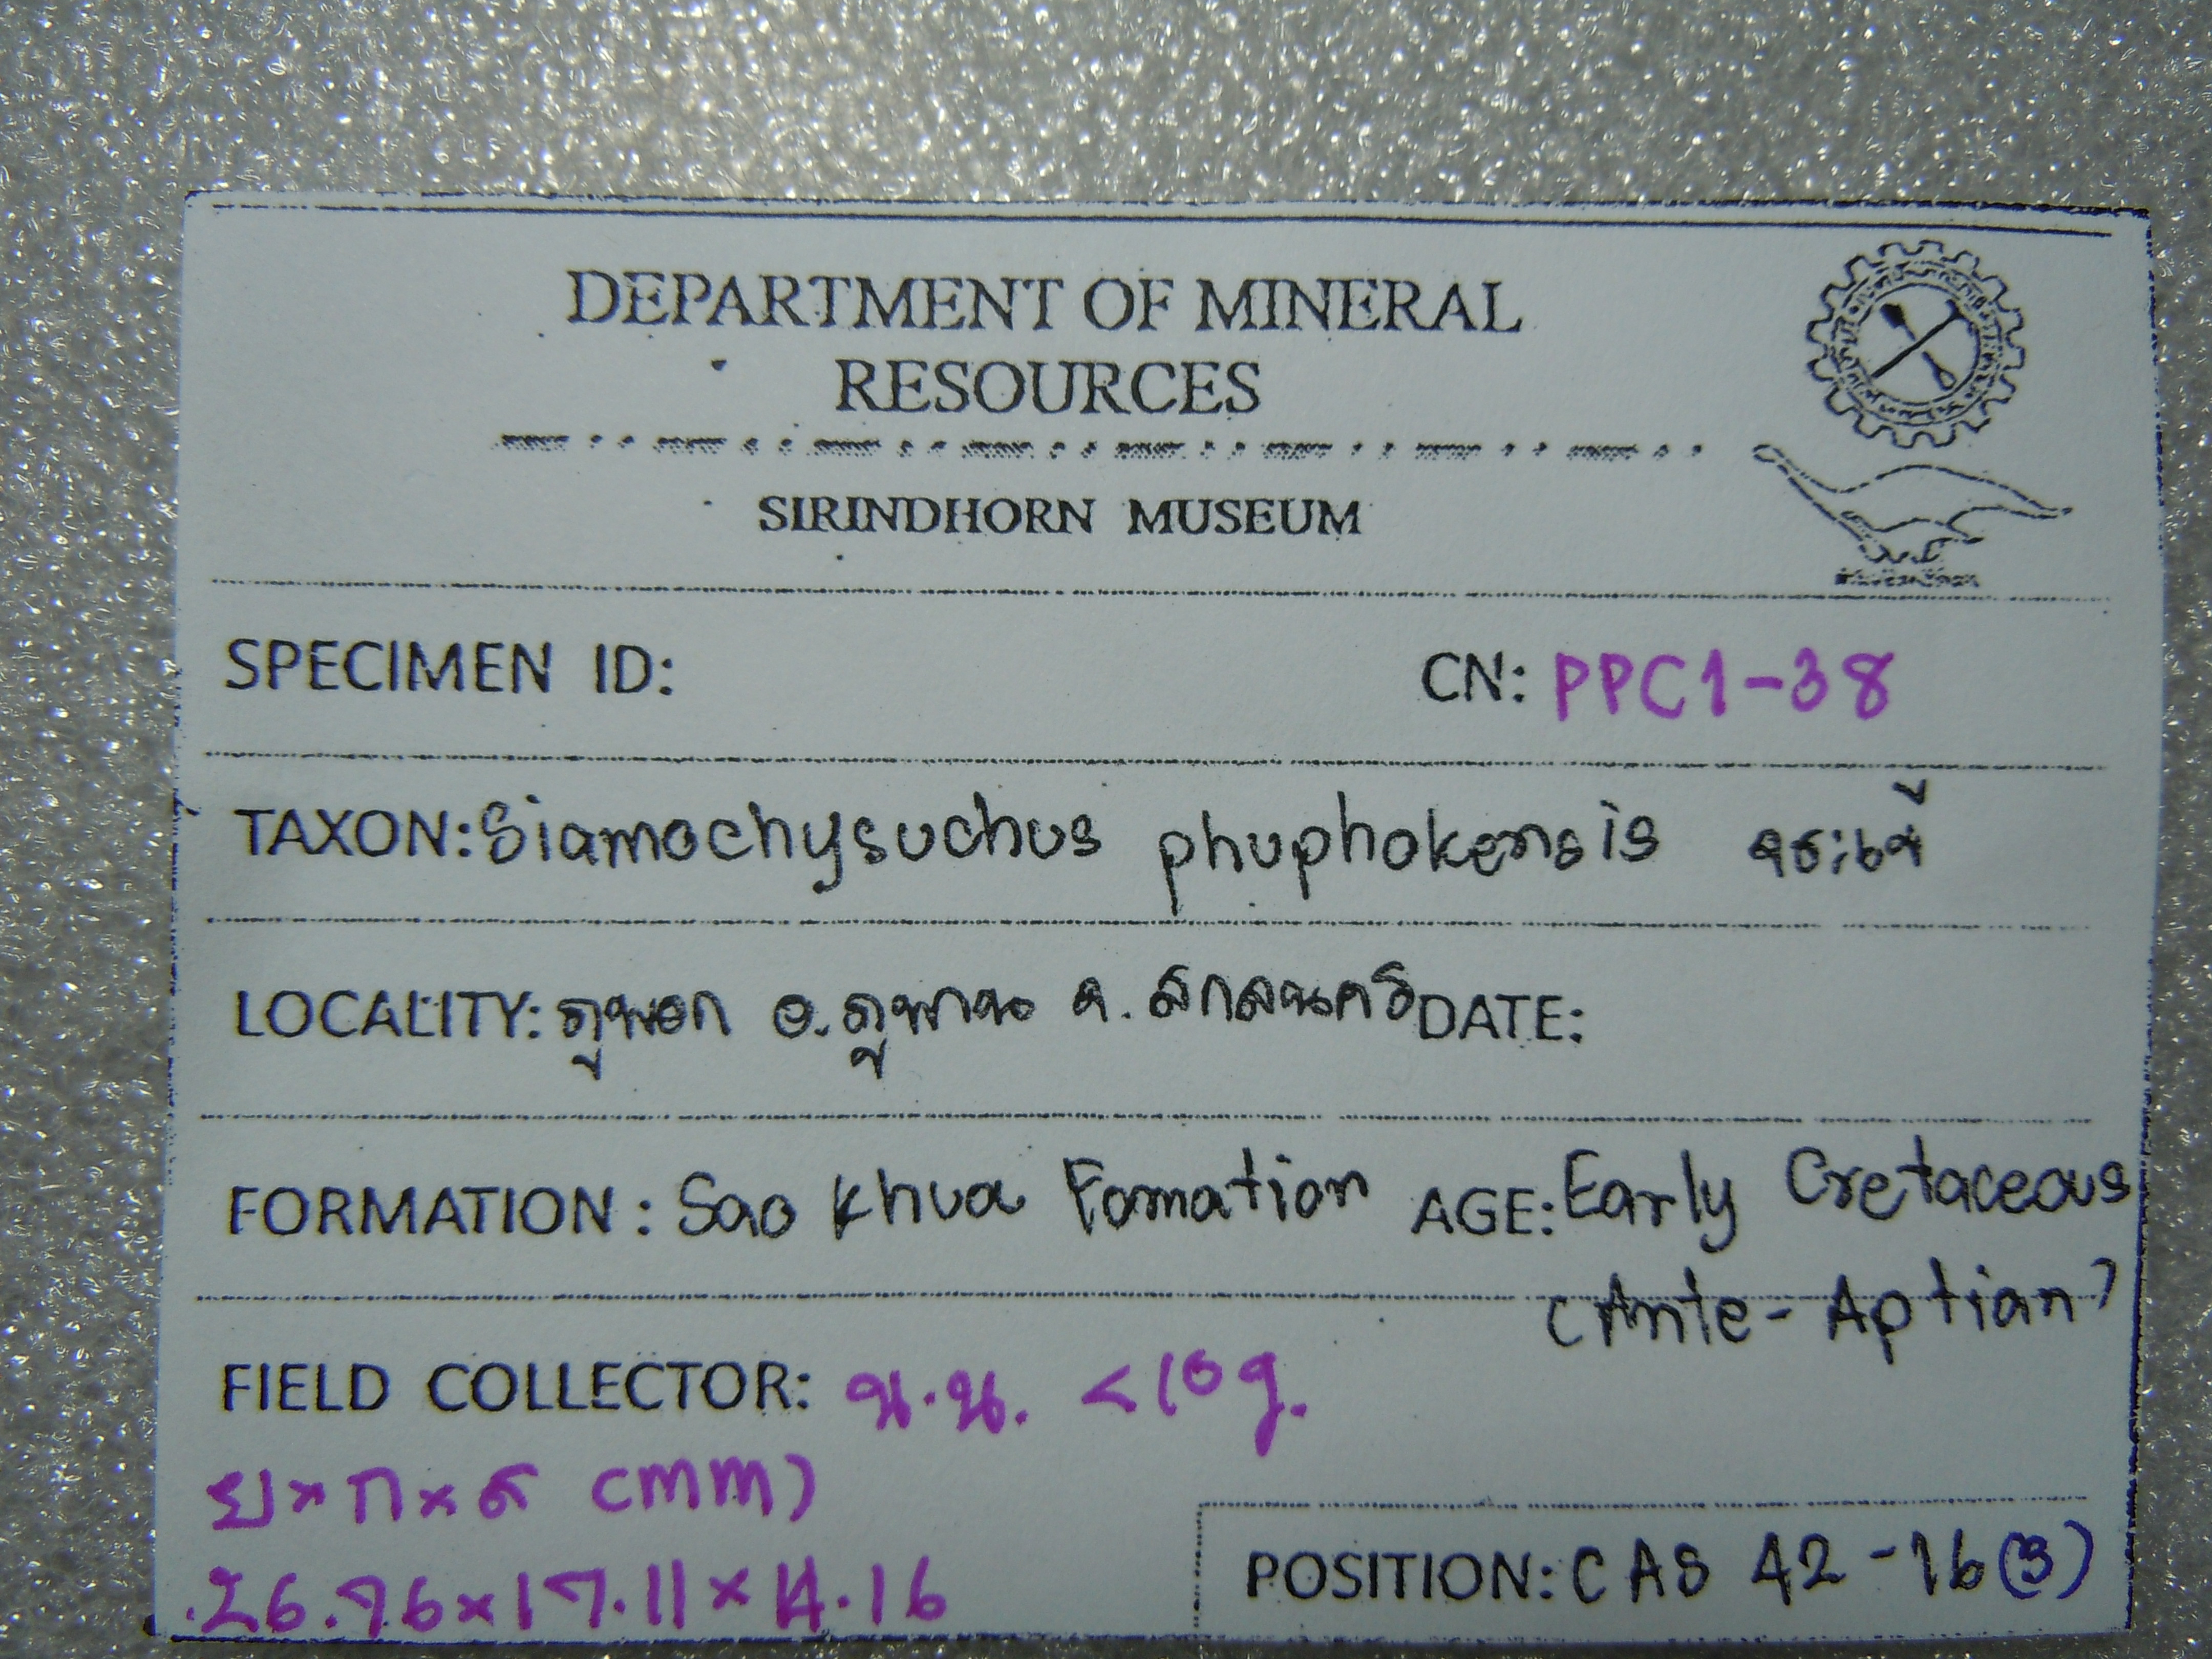 DEPARTMENT OF MINERAL
RESOURCES
SIRINDHORN MUSEUM
SPECIMEN ID: CN: PPC1-38
TAXON: Siamochysuchus phuphokensis จระเข้
LOCALITY: ภูพอก อ.ภูพาน จ.สกลนคร DATE:
FORMATION: Sao Khua Fomation AGE: Early Cretaceous
(Ante-Aptian)
FIELD COLLECTOR: น.น. <10g.
ย×ก×ส (mm)
26.76×17.11×14.16
POSITION: CAS 42-16(3)